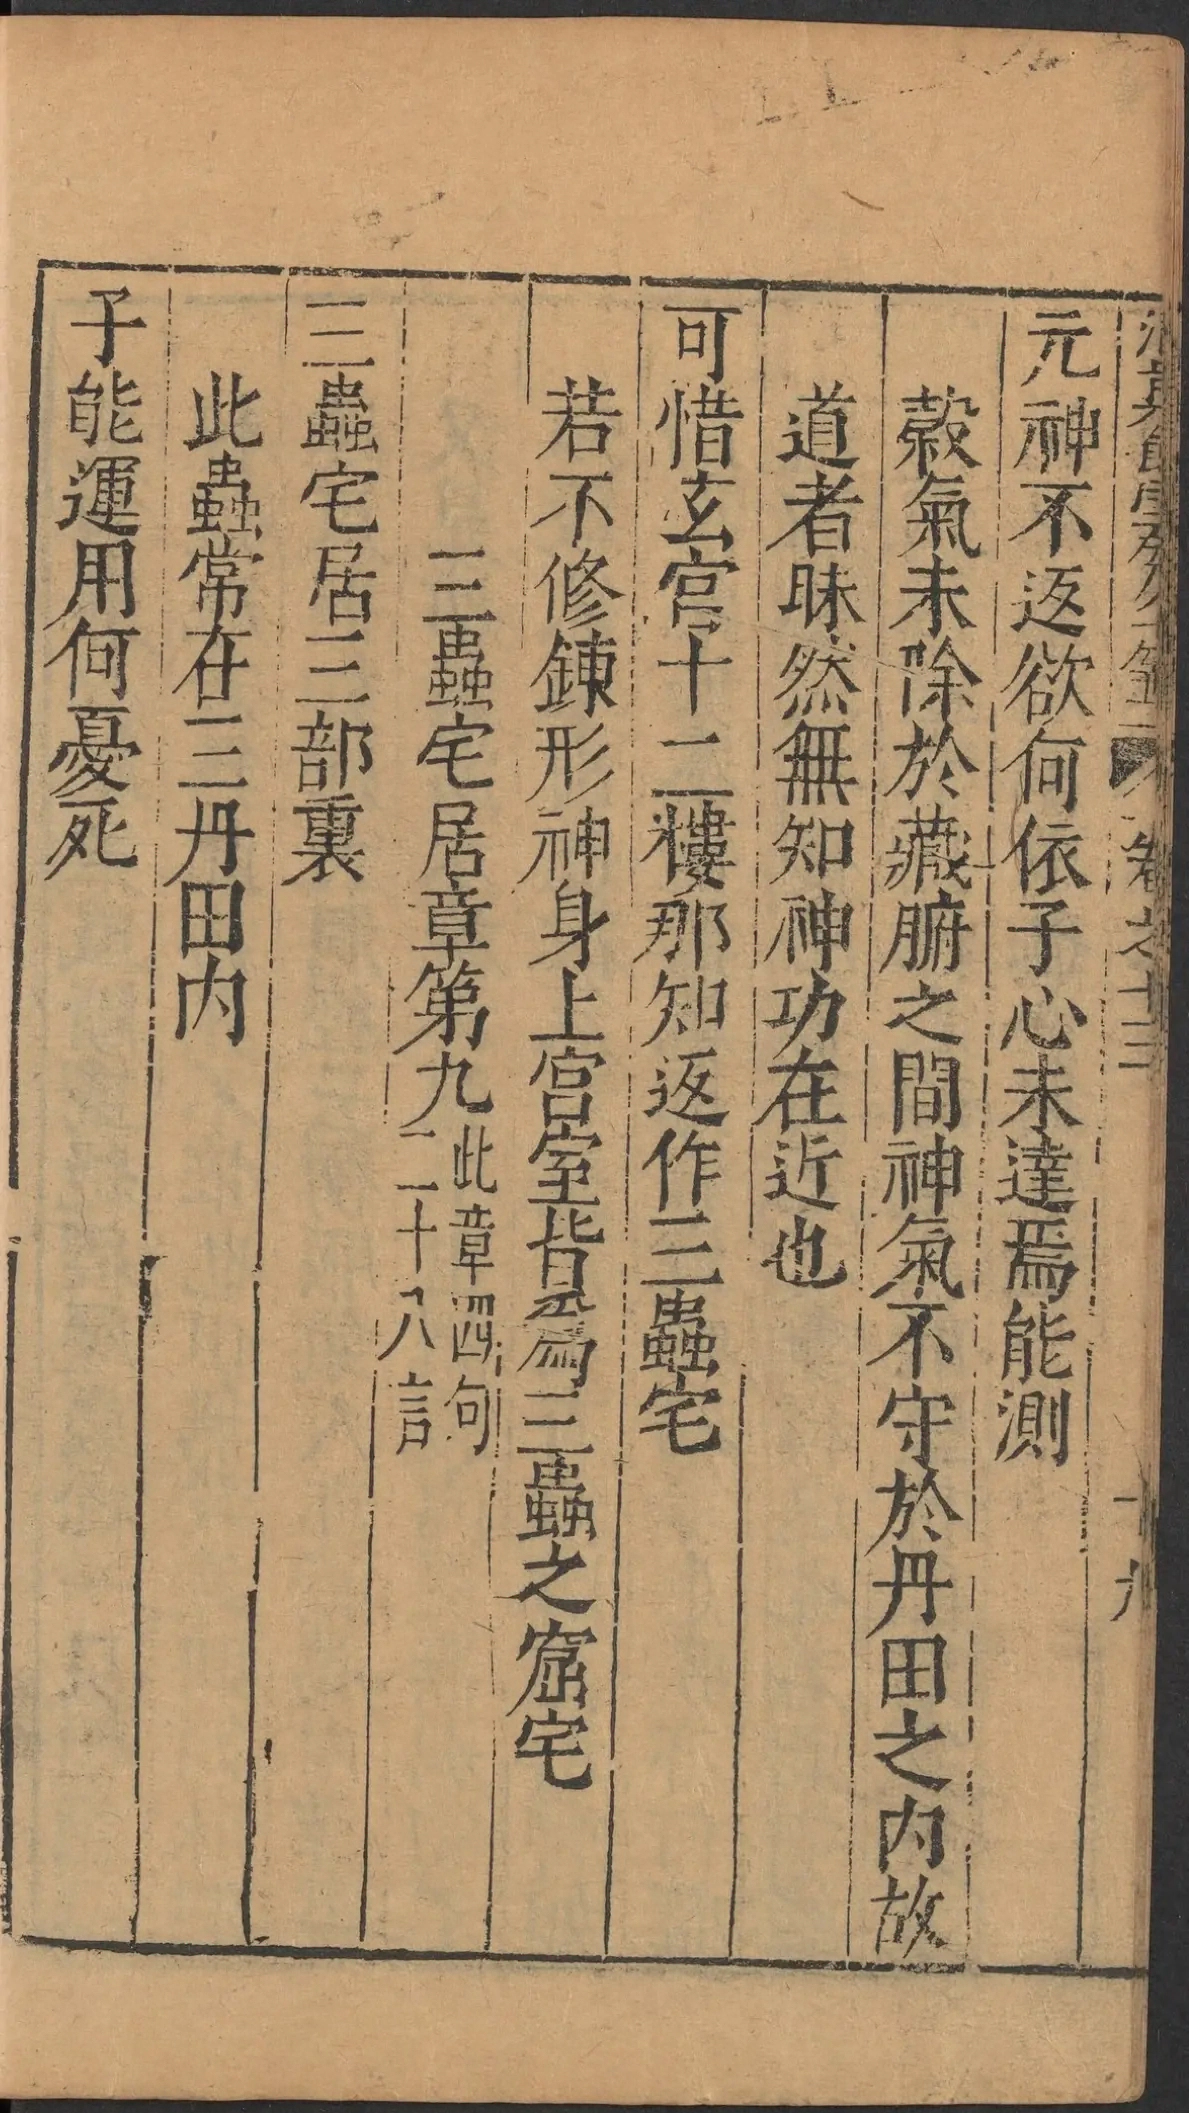 卷之十三
元神不返欲何依子心未達焉能測
穀氣未除於藏腑之間神氣不守於丹田之內故
道者昧然無知神功在近也
可惜玄宮十二樓那知返作三蟲宅
若不修鍊形神身上宮室皆為三蟲之窟宅
三蟲宅居章第九
此章四句
二十八言
三蟲宅居三部裏
此蟲常在三丹田內
子能運用何憂死